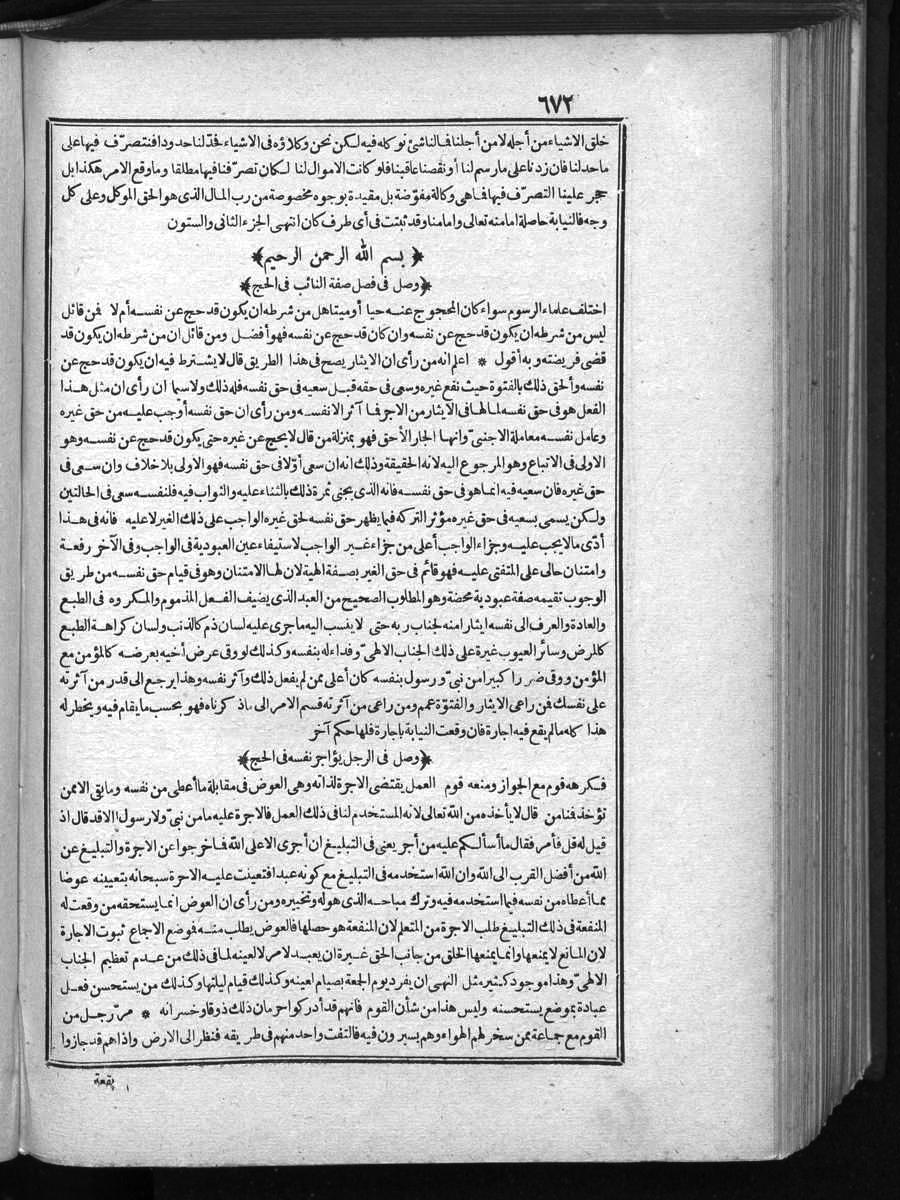 ٦٧٢
خلق الاشياء من أجله لا من أجلنا فالناشئ توكله فيه لكن نحن وكلاؤه فى الاشياء فحد لنا حدودا فنتصرّف فيها على
ما حد لنا فان زدنا على ما رسم لنا أو نقصنا عاقبنا فلو كانت الاموال لنا لكان تصرّفنا فيها مطلقا وما وقع الامر هكذا بل
حجر علينا التصرّف فيها فما هى وكالة مفوّضة بل مقيدة بوجوه مخصوصة من رب المال الذى هو الحق الموكل وعلى كل
وجه فالنيابة حاصلة اما منه تعالى واما منا وقد ثبتت فى أى طرف كان انتهى الجزء الثانى والستون
﴿ بسم الله الرحمن الرحيم ﴾
﴿وصل فى فصل صفة النائب فى الحج﴾
اختلف علماء الرسوم سواء كان المحجوج عنه حيا أو ميتا هل من شرطه ان يكون قد حج عن نفسه أم لا فمن قائل
ليس من شرطه ان يكون قد حج عن نفسه وان كان قد حج عن نفسه فهو أفضل ومن قائل ان من شرطه ان يكون قد
قضى فريضته وبه أقول * اعلم انه من رأى ان الايثار يصح فى هذا الطريق قال لا يشترط فيه ان يكون قد حج عن
نفسه وألحق ذلك بالفتوة حيث نفع غيره وسعى فى حقه قبل سعيه فى حق نفسه فله ذلك ولا سيما ان رأى ان مثل هذا
الفعل هو فى حق نفسه لما لها فى الايثار من الاجر فما آثر الا نفسه ومن رأى ان حق نفسه أوجب عليه من حق غيره
وعامل نفسه معاملة الاجنبىّ وانها الجار الأحق فهو بمنزلة من قال لا يحج عن غيره حتى يكون قد حج عن نفسه وهو
الاولى فى الاتباع وهو المرجوع اليه لانه الحقيقة وذلك انه ان سعى أوّلا فى حق نفسه فهو الاولى بلا خلاف وان سعى فى
حق غيره فان سعيه فيه انما هو فى حق نفسه فانه الذى يجنى ثمرة ذلك بالثناء عليه والثواب فيه فلنفسه سعى فى الحالتين
ولكن يسمى بسعيه فى حق غيره مؤثرا لتركه فيما يظهر حق نفسه لحق غيره الواجب على ذلك الغير لا عليه فانه فى هذا
أدّى مالا يجب عليه وجزاء الواجب أعلى من جزاء غير الواجب لاستيفاء عين العبودية فى الواجب وفى الآخر رفعة
وامتنان حالى على المتفتى عليه فهو قائم فى حق الغير بصفة الهية لان لها الامتنان وهو فى قيام حق نفسه من طريق
الوجوب تقيمه صفة عبودية محضة وهو المطلوب الصحيح من العبد الذى يضيف الفعل المذموم والمكروه فى الطبع
والعادة والعرف الى نفسه ايثارا منه لجناب ربه حتى لا ينسب اليه ما جرى عليه لسان ذم كالذنب ولسان كراهة الطبع
كالمرض وسائر العيوب غيرة على ذلك الجناب الالهىّ وفداء له بنفسه وكذلك لو وقى عرض أخيه بعرضه كالمؤمن مع
المؤمن ووقى ضررا كبيرا من نبىّ ورسول بنفسه كان أعلى ممن لم يفعل ذلك وآثر نفسه وهذا يرجع الى قدر من آثرته
على نفسك فمن راعى الايثار والفتوّة عمم ومن راعى من آثرته قسم الامر الى ما ذكرناه فهو بحسب ما يقام فيه ويخطر له
هذا كله ما لم يقع فيه اجارة فان وقعت النيابة باجارة فلها حكم آخر
﴿وصل فى الرجل يؤاجر نفسه فى الحج﴾
فكرهه قوم مع الجواز ومنعه قوم العمل يقتضى الاجرة لذاته وهى العوض فى مقابلة ما أعطى من نفسه وما بقى الا ممن
تؤخذ فنا من قال لا يأخذه من الله تعالى لانه المستخدم لنا فى ذلك العمل فالاجرة عليه ما من نبىّ ولا رسول الا قد قال اذ
قيل له قل فأمر فقال ما أسألكم عليه من أجر يعنى فى التبليغ ان أجرى الا على الله فما خرجوا عن الاجرة والتبليغ عن
الله من أفضل القرب الى الله وان الله استخدمه فى التبليغ مع كونه عبدا فتعينت عليه الاجرة سبحانه بتعيينه عوضا
مما أعطاه من نفسه فيما استخدمه فيه وترك مباحه الذى هو له وتخييره ومن رأى ان العوض انما يستحقه من وقعت له
المنفعة فى ذلك التبليغ طلب الاجرة من المتعلم لان المنفعة هو حصلها فالعوض يطلب منه فوضع الاجماع ثبوت الاجارة
لان المانع لا يمنعها وانما يمنعها الخلق من جانب الحق غيرة ان يعبد لامر لا لعينه لما فى ذلك من عدم تعظيم الجناب
الالهىّ وهذا موجود كثير مثل النهى ان يفرد يوم الجمعة بصيام لعينه وكذلك قيام ليلتها وكذلك من يستحسن فعل
عبادة بموضع يستحسنه وليس هذا من شأن القوم فانهم قد أدركوا حرمان ذلك ذوقا وخسرانه * مرّ رجل من
القوم مع جماعة ممن سخر لهم الهواء وهم يسيرون فيه فالتفت واحد منهم فى طريقه فنظر الى الارض واذا هم قد جازوا
بقعة